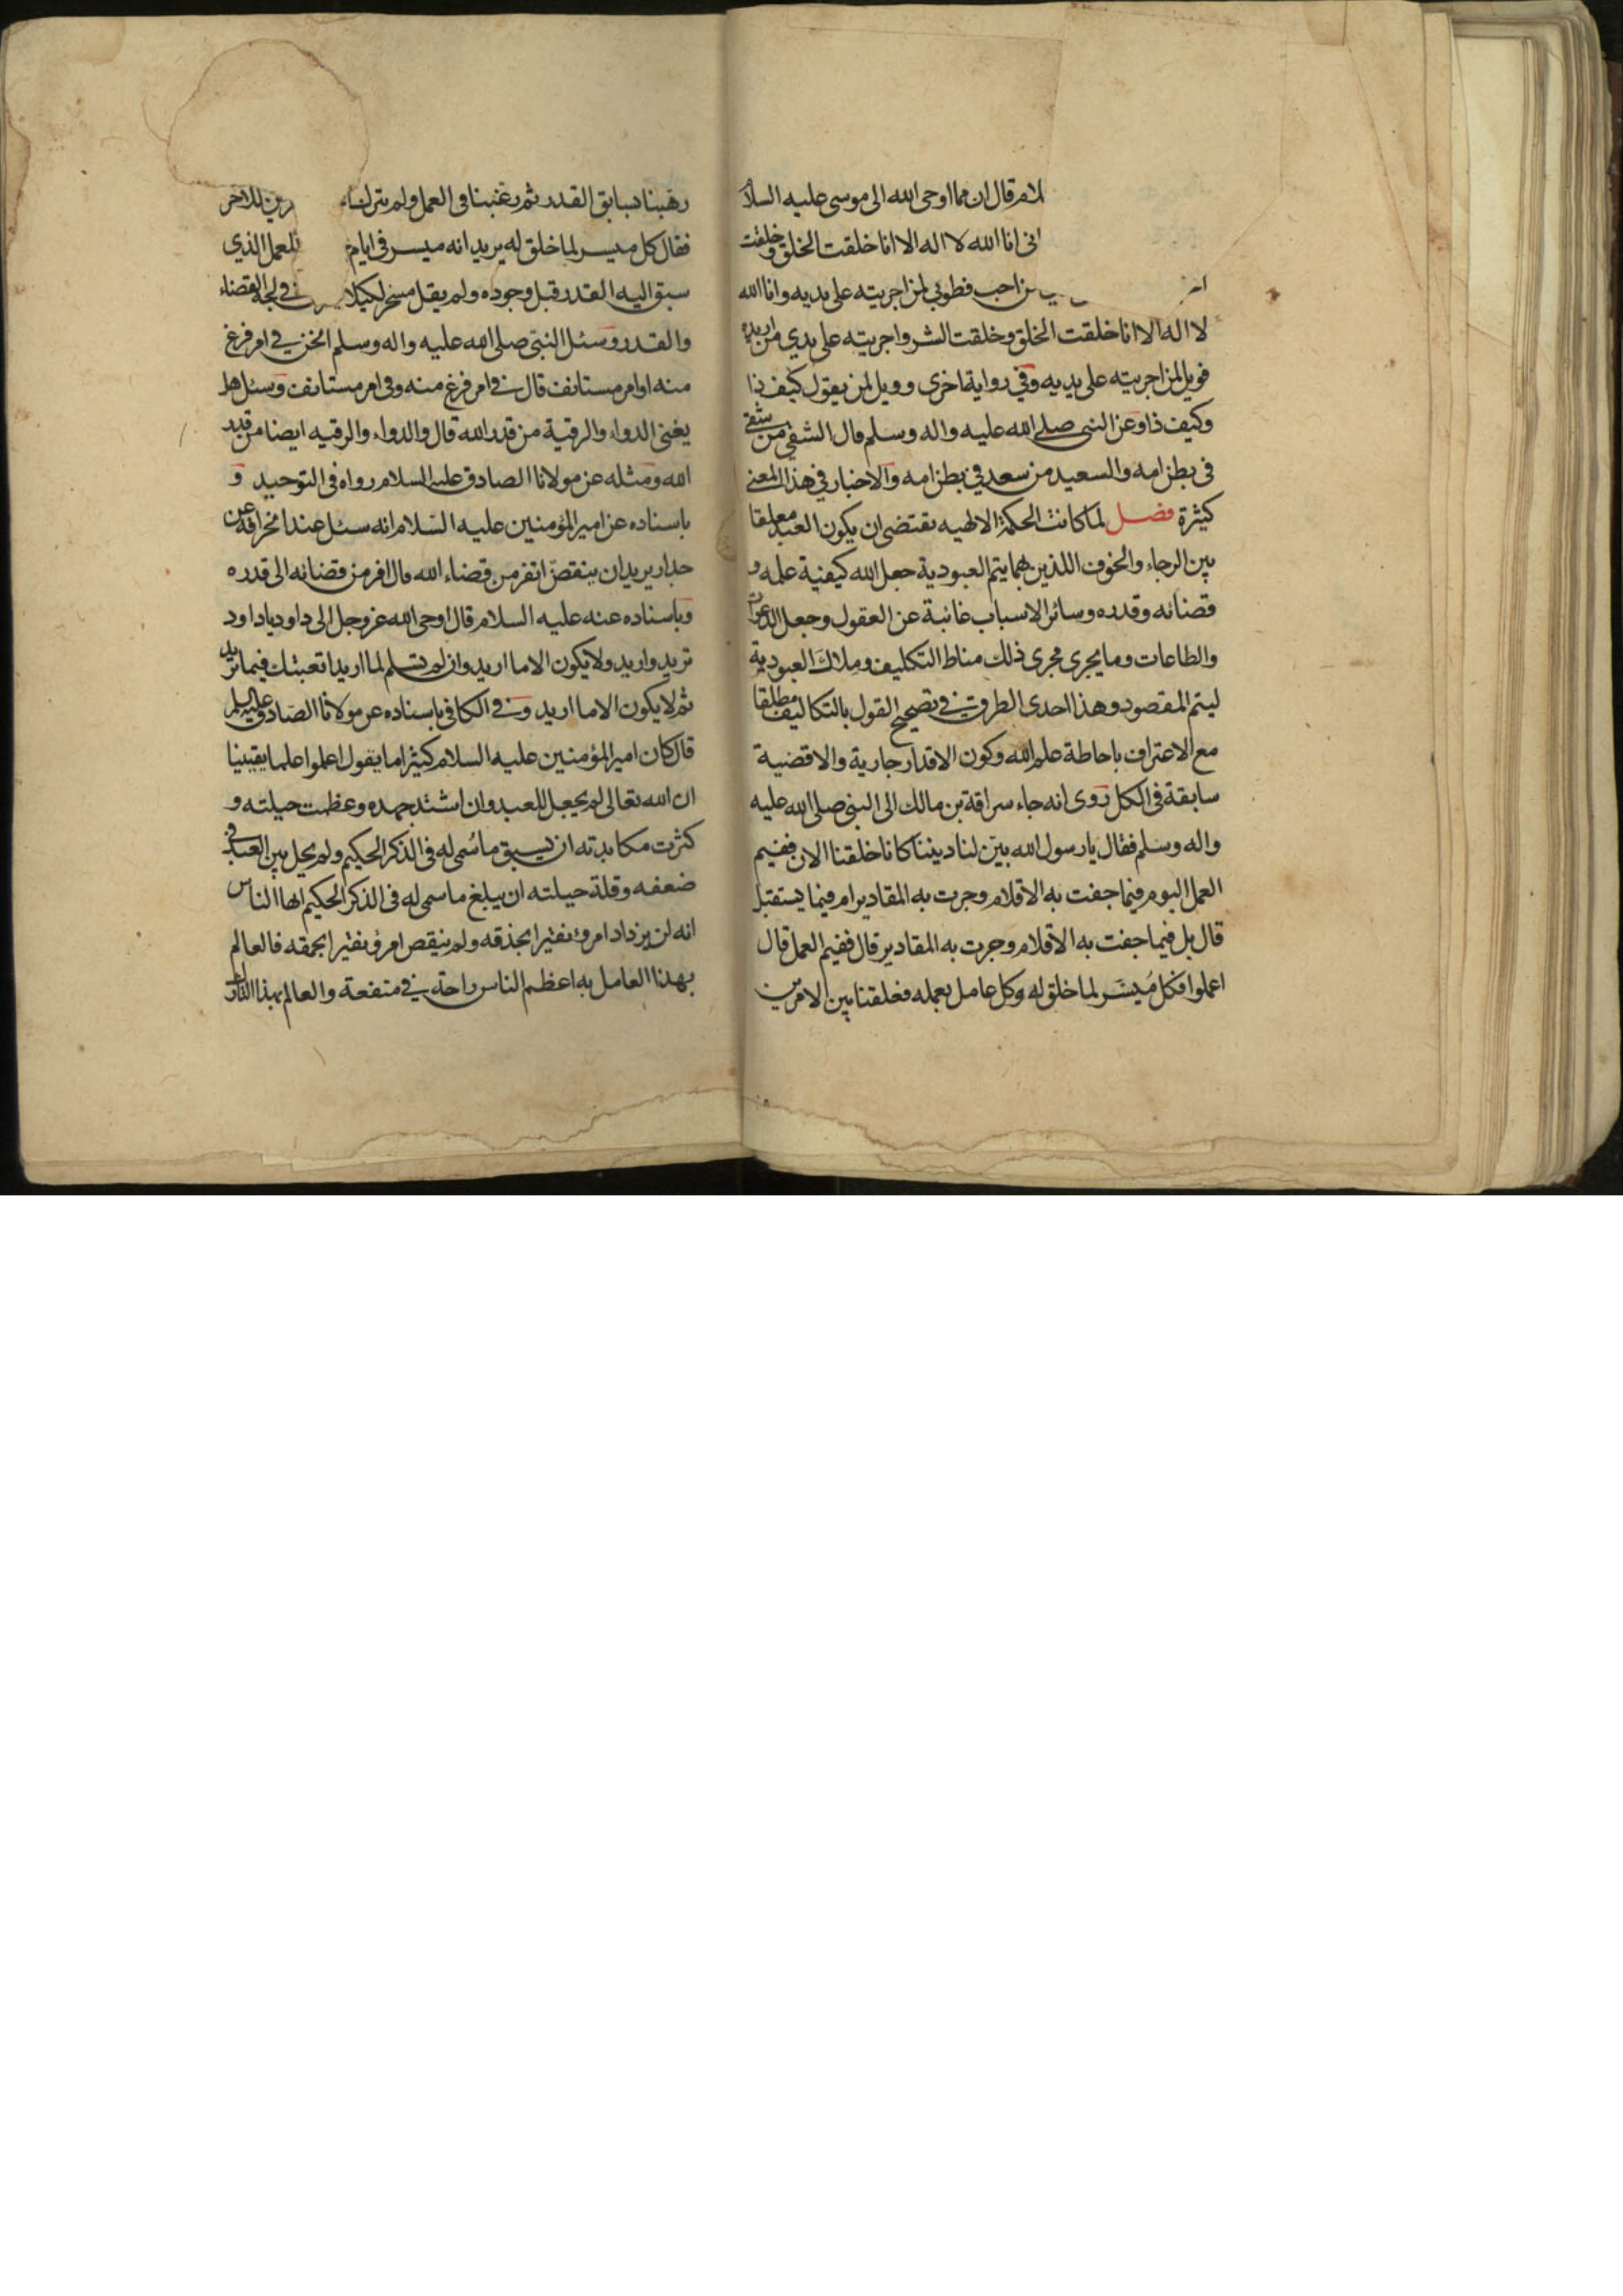 لام قال ان مما اوحى الله الى موسى عليه السلا
انى انا الله لا اله الا انا خلقت الخلق وخلقت
من احب فطوبى لمن اجريته على يديه وانا الله
لا اله الا انا خلقت الخلق وخلقت الشر واجريته على يدي من اريده
فويل لمن اجريته على يديه وفي رواية اخرى وويل لمن يقول كيف ذا
وكيف ذا وعن النبى صلى الله عليه واله وسلم قال الشقى من شقى
فى بطن امه والسعيد من سعد في بطن امه والاخبار في هذا المعنى
كثيرة فصل لما كانت الحكمة الالهيه تقتضى ان يكون العبد معلقا
بين الرجاء والخوف اللذين بهما يتم العبودية جعل الله كيفية علمه و
قضائه وقدره وسائر الاسباب غائبة عن العقول وجعل الدعوات
والطاعات وما يجرى مجرى ذلك مناط التكليف وملاك العبودية
ليتم المقصود وهذا احدى الطرق في تصحيح القول بالتكاليف مطلقا
مع الاعتراف باحاطة علم الله وكون الاقدار جارية والاقضية
سابقة فى الكل روى انه جاء سراقة بن مالك الى النبى صلى الله عليه
واله وسلم فقال يا رسول الله بين لنا ديننا كانا خلقنا الان ففيم
العمل اليوم فيما جفت به الاقلام وجرت به المقادير ام فيما يستقبل
قال بل فيما جفت به الاقلام وجرت به المقادير قال ففيم العمل قال
اعملوا فكل مُيسّر لما خلق له وكل عامل بعمله فعلقنا بين الامرين
رهبنا بسابق القدر ثم رغبنا فى العمل ولم يترك للاخر
فقال كل ميسر لما خلق له يريد انه ميسر فى ايام للعمل الذي
سبق اليه القدر قبل وجوده ولم يقل مسخر لكيلا في لجة القضاء
والقدر وسئل النبى صلى الله عليه واله وسلم انحن في امر فرغ
منه او امر مستانف قال في امر فرغ منه وفى امر مستانف وسئل هل
يغنى الدواء والرقية من قدر الله قال والدواء والرقيه ايضا من قدر
الله ومثله عن مولانا الصادق عليه السلام رواه فى التوحيد و
باسناده عن امير المؤمنين عليه السلام انه سئل عند انحرافه عن
جدار يريد ان ينقضّ اتفر من قضاء الله قال افر من قضائه الى قدره
وباسناده عنه عليه السلام قال اوحى الله عز وجل الى داود يا داود
تريد واريد ولا يكون الا ما اريد وان لم تسلم لما اريد اتعبتك فيما تريد
ثم لا يكون الا ما اريد وفي الكافى باسناده عن مولانا الصادق عليه السلم
قال كان امير المؤمنين عليه السلام كثيرا ما يقول اعلموا علما يقينا
ان الله تعالى لم يجعل للعبد وان اشتد جهده وعظمت حيلته و
كثرت مكابدته ان يسبق ما سُمى له فى الذكر الحكيم ولم يحل بين العبد فى
ضعفه وقلة حيلته ان يبلغ ما سمى له فى الذكر الحكيم ايها الناس
انه لن يزداد امرؤ نقيرا بحذقه ولم ينقص امرؤ نقيرا بحمقه فالعالم
بهذا العامل به اعظم الناس راحة في منفعة والعالم بهذا التارك